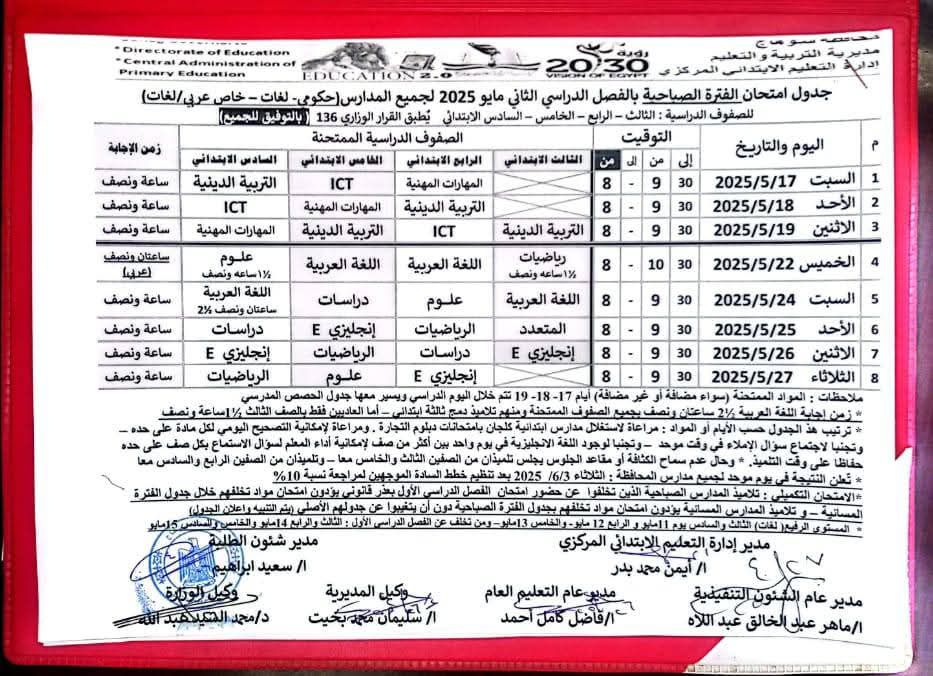 *Directorate of Education
*Central Administration of
Primary Education
EDUCATION 2.0
رؤية
2030
VISION OF EGYPT
مديرية التربية والتعليم
إدارة التعليم الابتدائي المركزي
جدول امتحان الفترة الصباحية بالفصل الدراسي الثاني مايو 2025 لجميع المدارس(حكومي- لغات – خاص عربي/لغات)
للصفوف الدراسية : الثالث – الرابع – الخامس – السادس الابتدائي يُطبق القرار الوزاري 136 (بالتوفيق للجميع)
م اليوم والتاريخ التوقيت الصفوف الدراسية الممتحنة زمن الإجابة
إلى من إلى من الثالث الابتدائي الرابع الابتدائي الخامس الابتدائي السادس الابتدائي
1 السبت 2025/5/17 30 9 - 8 المهارات المهنية ICT التربية الدينية ساعة ونصف
2 الأحد 2025/5/18 30 9 - 8 التربية الدينية المهارات المهنية ICT ساعة ونصف
3 الاثنين 2025/5/19 30 9 - 8 التربية الدينية ICT التربية الدينية المهارات المهنية ساعة ونصف
4 الخميس 2025/5/22 30 10 - 8 رياضيات ١½ساعه ونصف اللغة العربية اللغة العربية علوم ١½ساعه ونصف ساعتان ونصف (عربي)
5 السبت 2025/5/24 30 9 - 8 اللغة العربية علـوم دراسات اللغة العربية ساعتان ونصف 2½ ساعة ونصف
6 الأحد 2025/5/25 30 9 - 8 المتعدد الرياضيات إنجليزي E دراسات ساعة ونصف
7 الاثنين 2025/5/26 30 9 - 8 إنجليزي E دراسات الرياضيات إنجليزي E ساعة ونصف
8 الثلاثاء 2025/5/27 30 9 - 8 إنجليزي E علـوم الرياضيات ساعة ونصف
ملاحظات : المواد الممتحنة (سواء مضافة أو غير مضافة) أيام 17- 18- 19 تتم خلال اليوم الدراسي ويسير معها جدول الحصص المدرسي
* زمن إجابة اللغة العربية 2½ ساعتان ونصف بجميع الصفوف الممتحنة ومنهم تلاميذ دمج ثالثة ابتدائي – أما العاديين فقط بالصف الثالث ١½ساعة ونصف
* ترتيب هذ الجدول حسب الأيام أو المواد : مراعاة لاستغلال مدارس ابتدائية كلجان بامتحانات دبلوم التجارة . ومراعاة لإمكانية التصحيح اليومي لكل مادة على حده –
وتجنبا لاجتماع سؤال الإملاء في وقت موحد – وتجنبا لوجود اللغة الانجليزية في يوم واحد بين أكثر من صف لإمكانية أداء المعلم لسؤال الاستماع بكل صف على حده
حفاظا على وقت التلميذ. * وحال عدم سماح الكثافة أو مقاعد الجلوس يجلس تلميذان من الصفين الثالث والخامس معا – وتلميذان من الصفين الرابع والسادس معا
* تُعلن النتيجة في يوم موحد لجميع مدارس المحافظة : الثلاثاء 6/3/ 2025 بعد تنظيم خطط السادة الموجهين لمراجعة نسبة 10%
*الامتحان التكميلي : تلاميذ المدارس الصباحية الذين تخلفوا عن حضور امتحان الفصل الدراسي الأول بعذر قانوني يؤدون امتحان مواد تخلفهم خلال جدول الفترة
المسائية – و تلاميذ المدارس المسائية يؤدون امتحان مواد تخلفهم بجدول الفترة الصباحية دون أن يتغيبوا عن جدولهم الأصلي (يتم التنبيه واعلان الجدول)
* المستوى الرفيع( لغات) الثالث والسادس يوم 11مايو و الرابع 12 مايو- والخامس 13مايو– ومن تخلف عن الفصل الدراسي الأول : الثالث والرابع 14مايو والخامس والسادس 15مايو
مدير إدارة التعليم الابتدائي المركزي
مدير شئون الطلبة
ا/ أيمن محمد بدر
ا/ سعيد ابراهيم
مدير عام الشئون التنفيذية
مدير عام التعليم العام
وكيل المديرية
وكيل الوزارة
ا/ماهر عبد الخالق عبد اللاه
ا/فاضل كامل أحمد
ا/ سليمان محمد بخيت
د/محمد السيد عبد الله